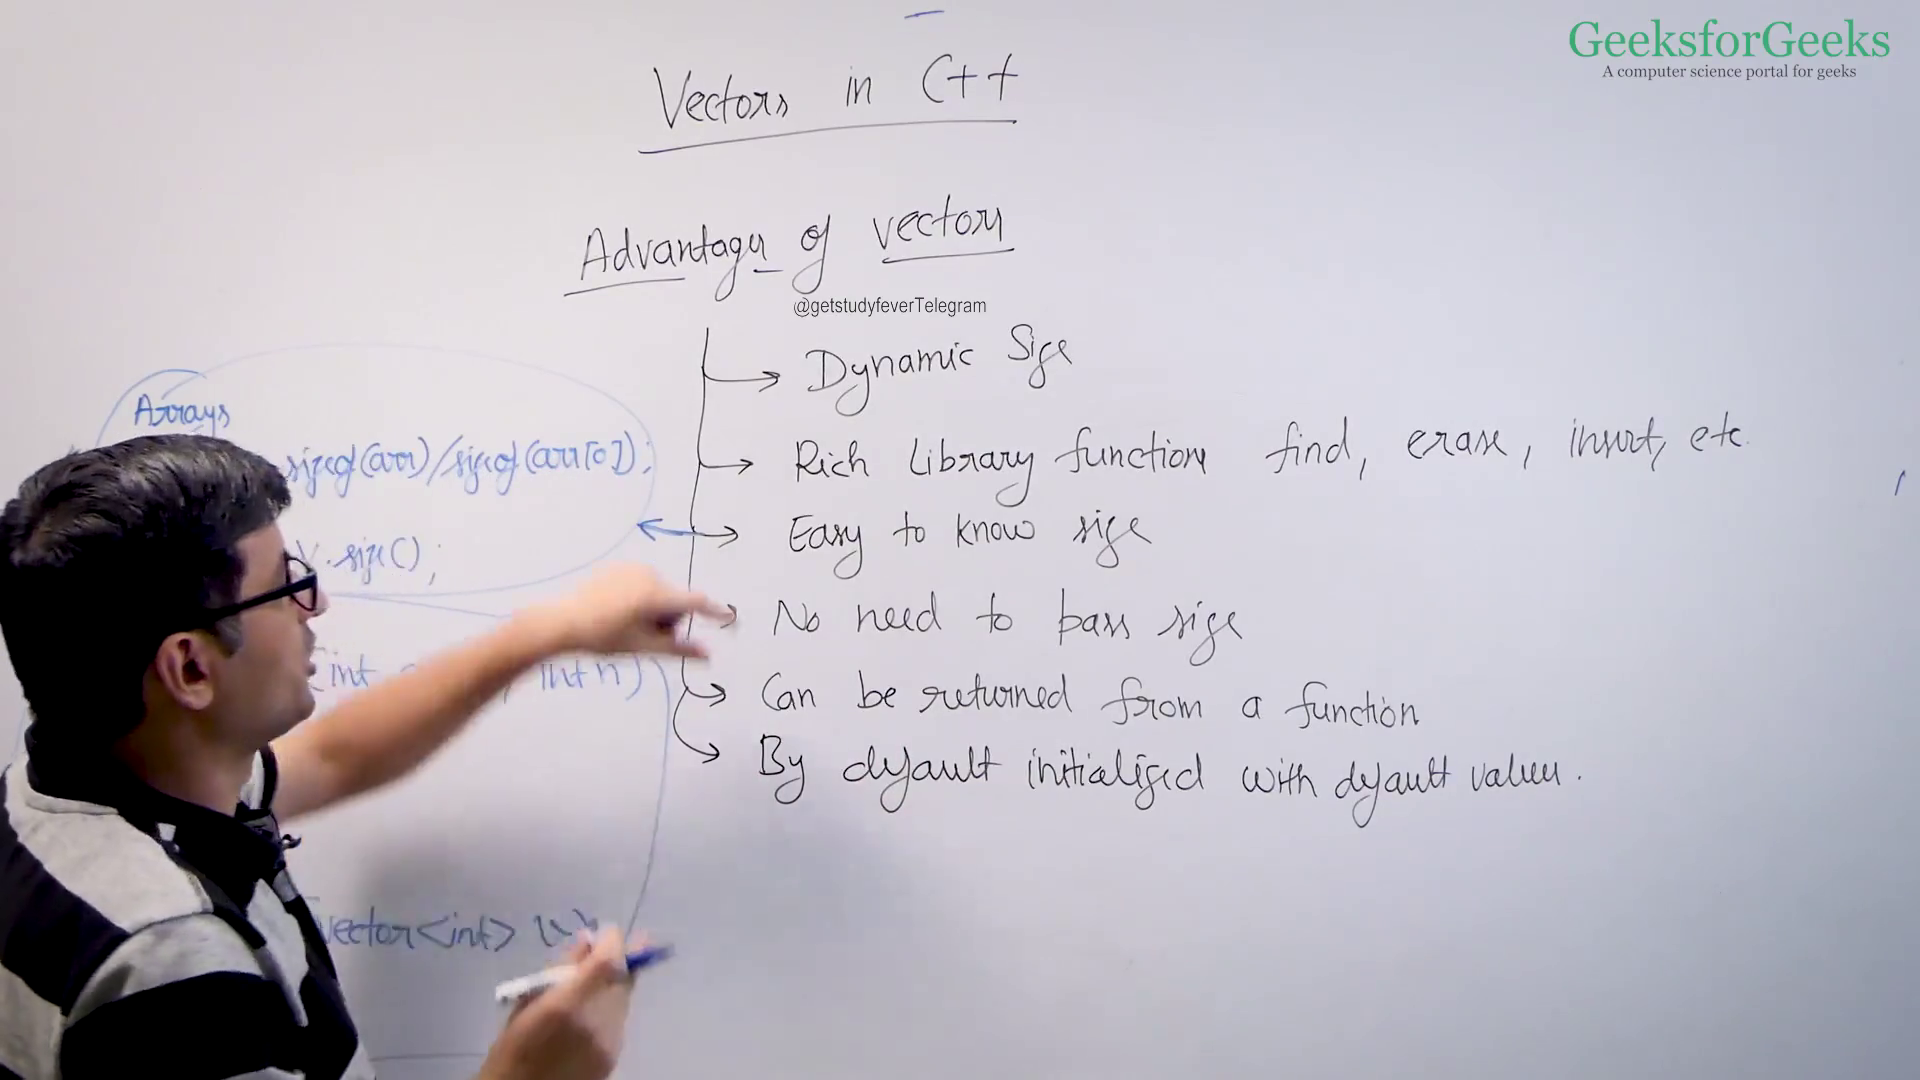 GeeksforGeeks
A computer science portal for geeks
Vectors in C++
Advantages of vectors
@getstudyfeverTelegram
→ Dynamic Size
→ Rich Library functions find, erase, insert, etc.
→ Easy to know size
→ No need to pass size
→ Can be returned from a function
→ By default initialized with default values.
Arrays
sizeof(arr)/sizeof(arr[0]);
V.size();
(int , int n)
vector<int>